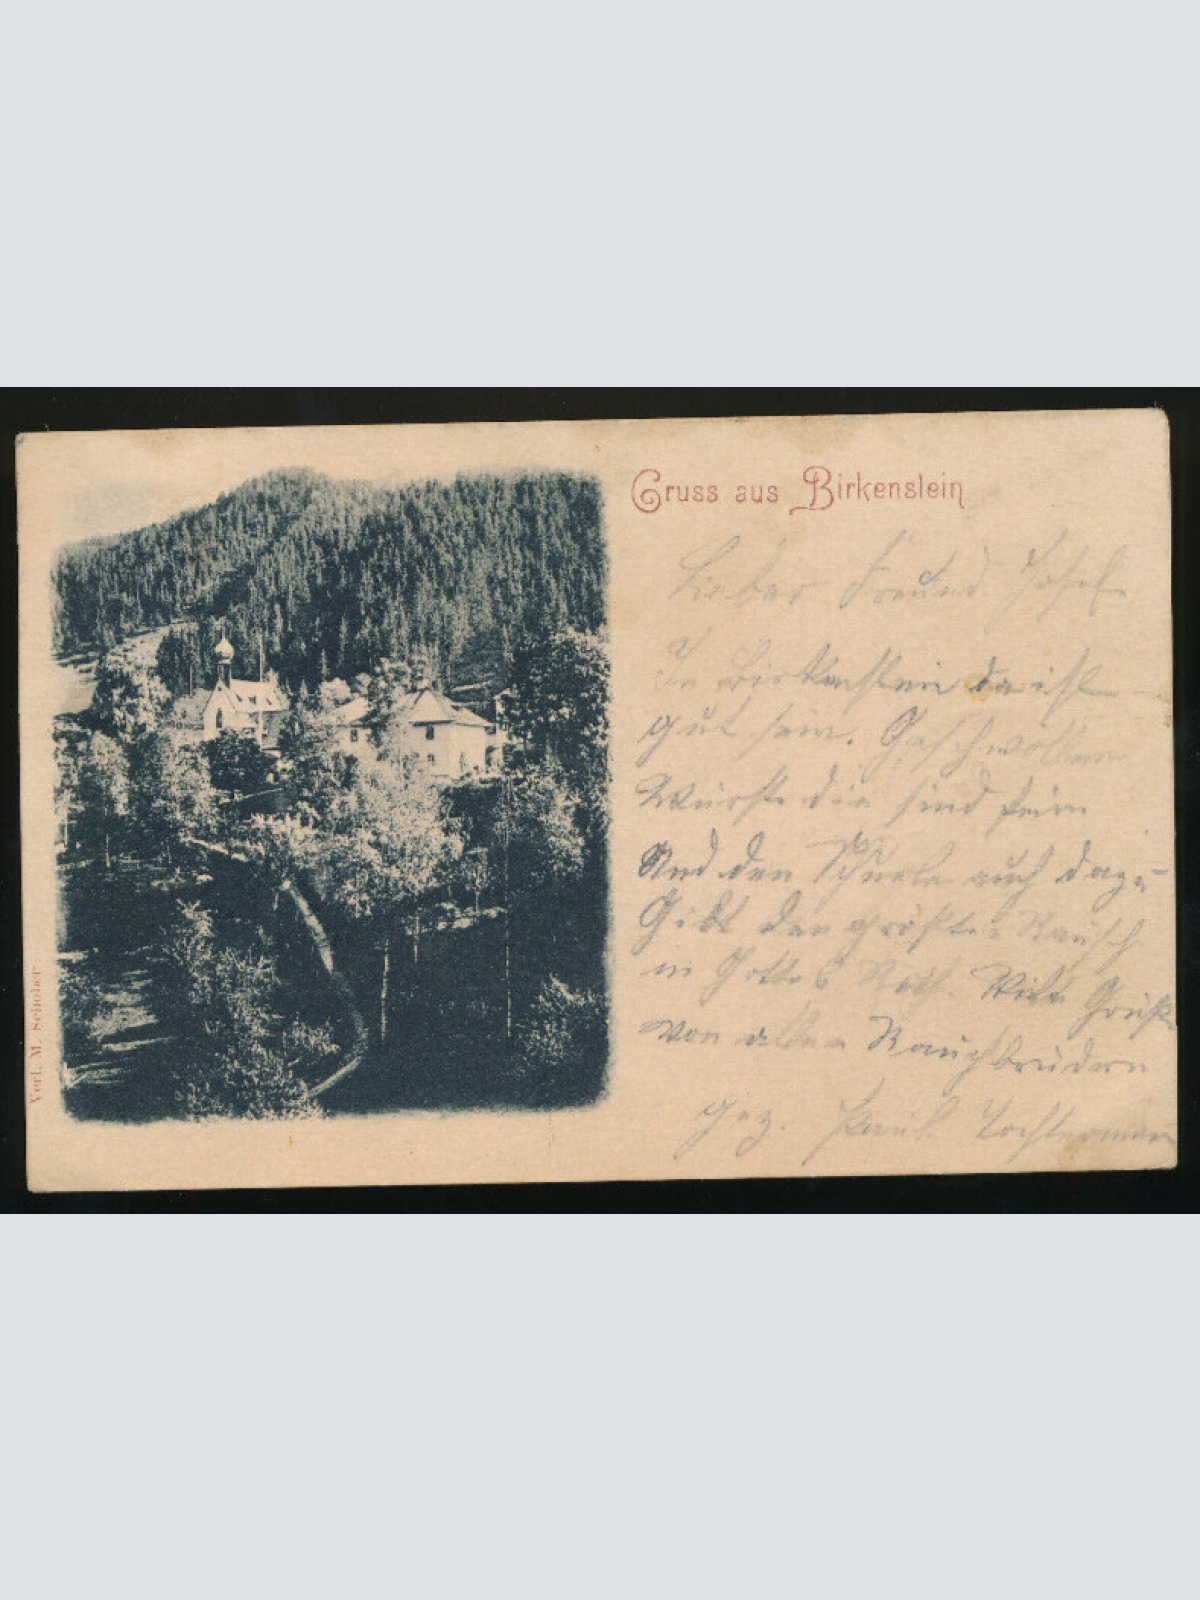 Gruss aus Birkenstein
Lieber Freund Josef
In Birkenstein da ist
gut sein. Geschwollene
Würste die sind fein
Und den auch dazu
Gibt den größten Rausch
in Gottes Viele Grüße
von allen Rauschbrüdern
gez.
Verl. M. Schober